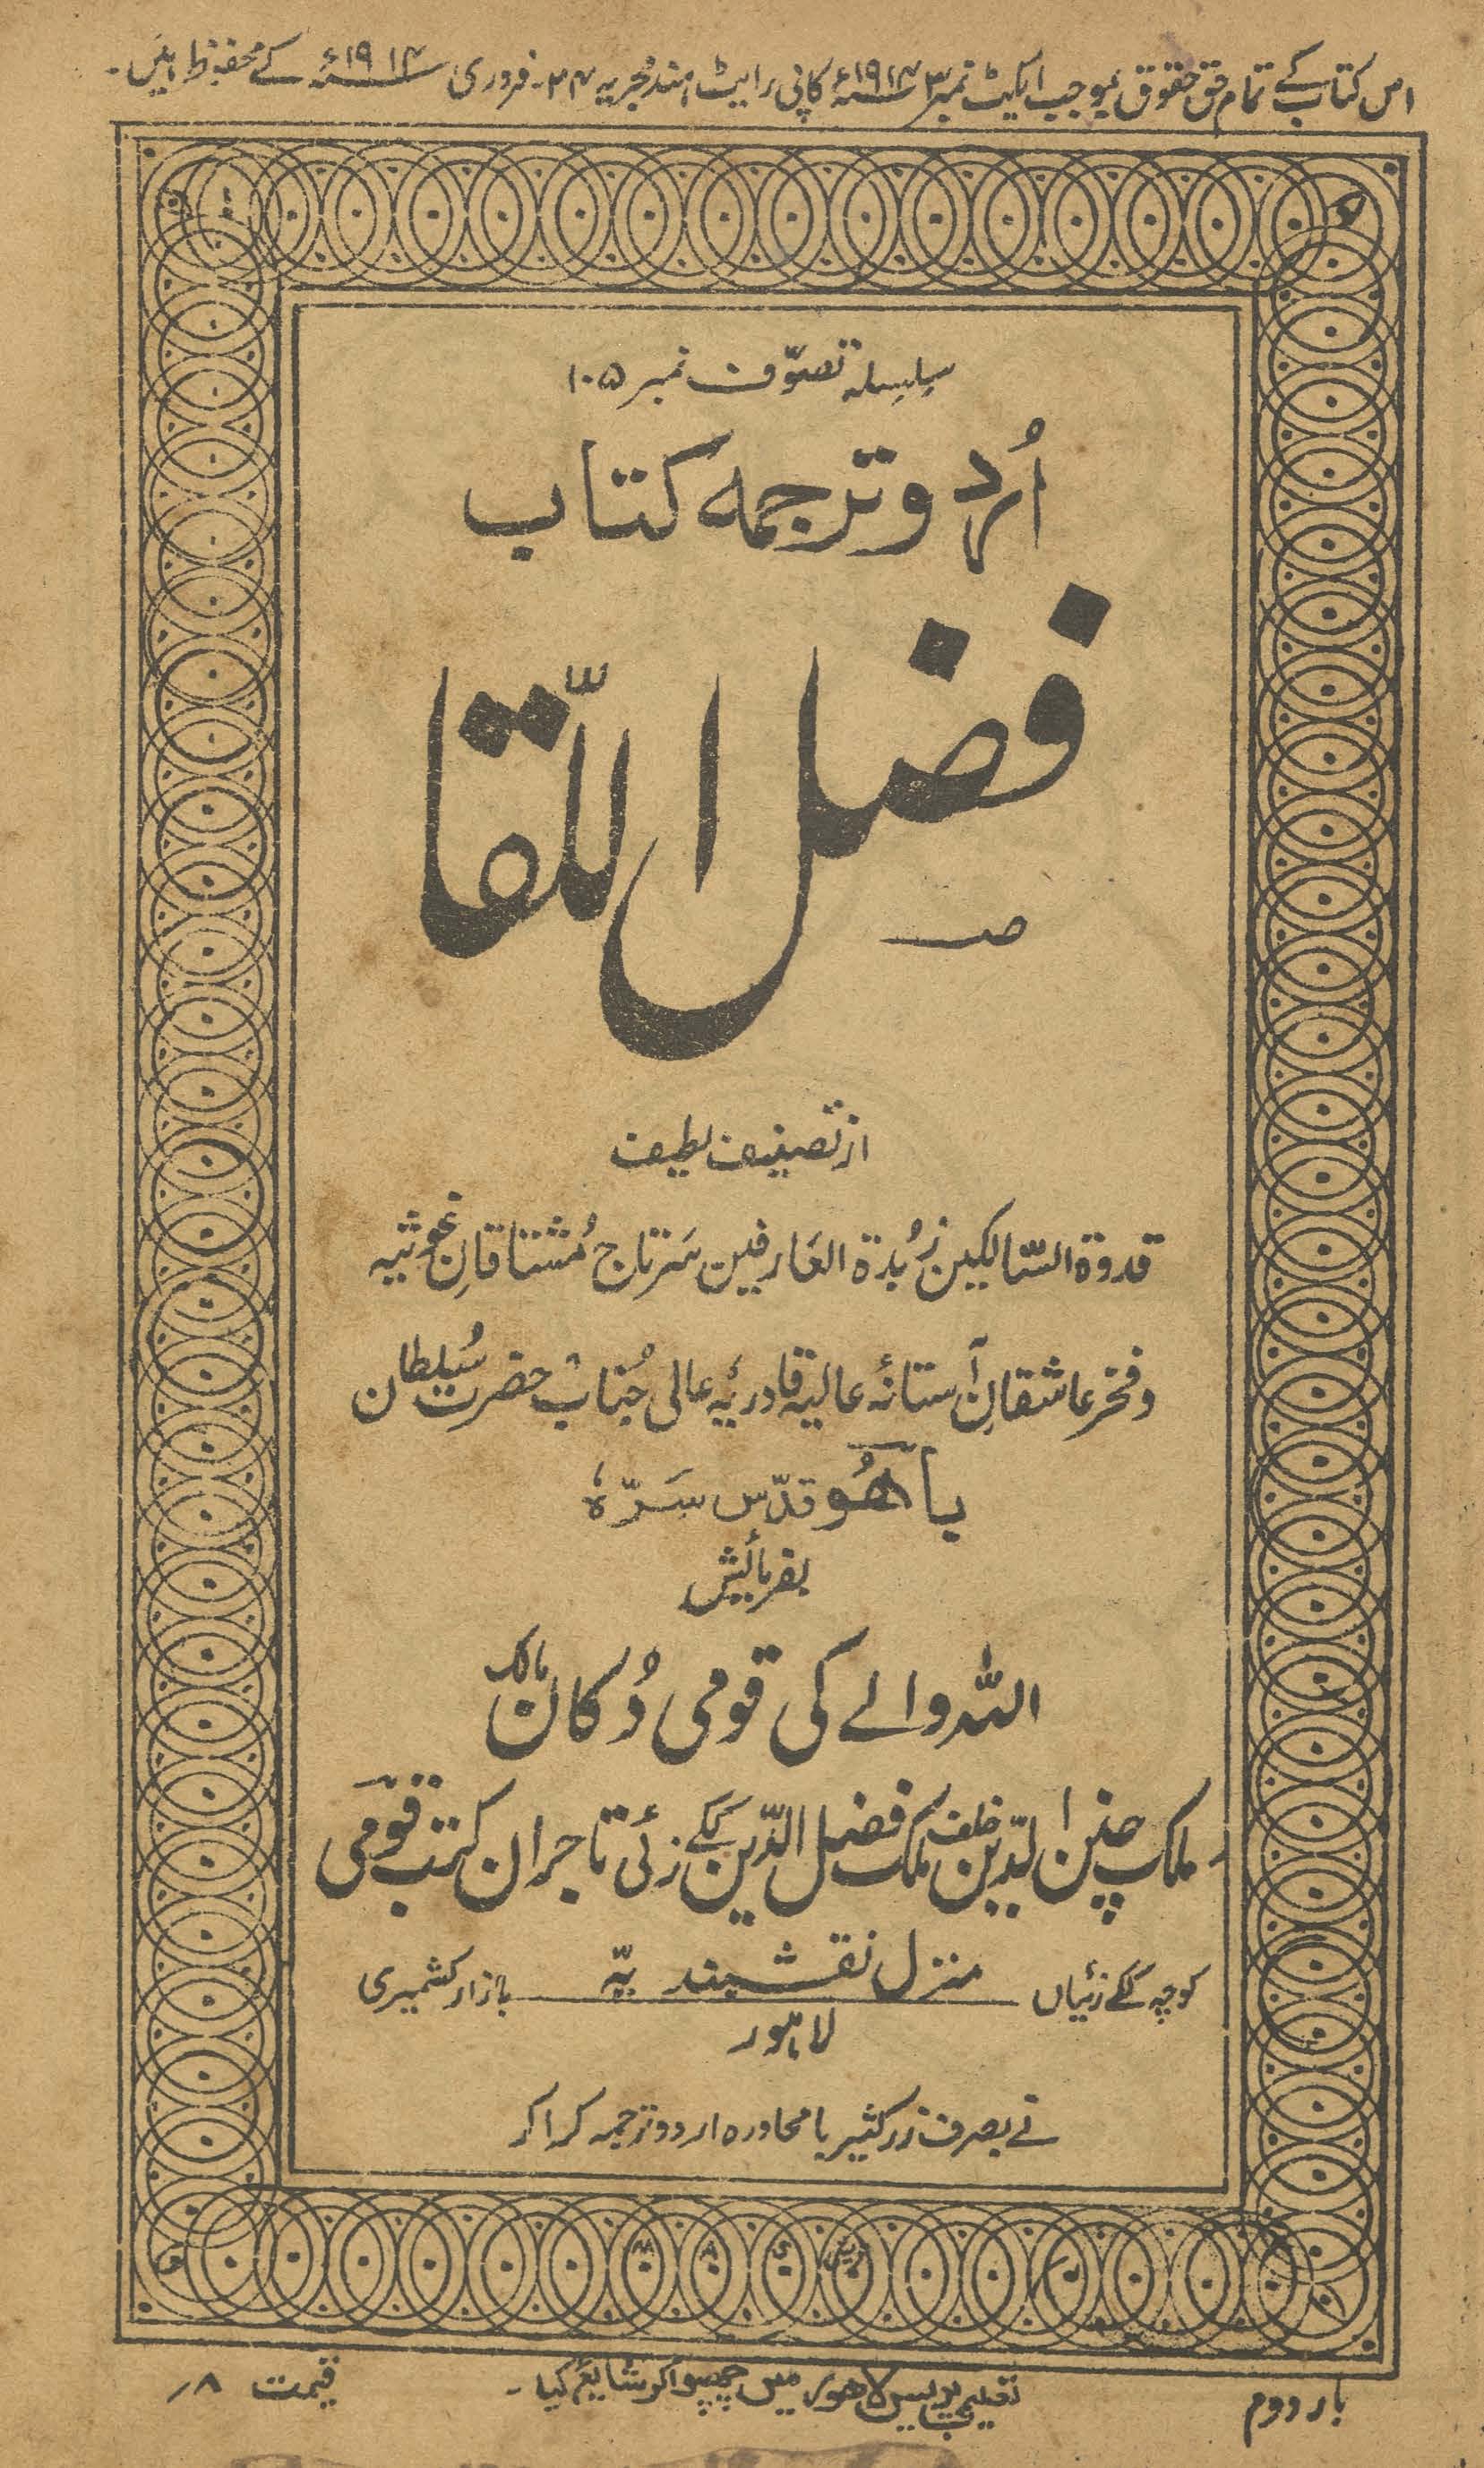 اس کتاب کے تمام حق حقوق بموجب ایکٹ نمبر ۳ ۱۹۱۴ء کاپی رایٹ ہند مجریہ ۲۴۔ فروری ۱۹۱۴ء کے محفوظ ہیں۔
سلسلہ تصوّف نمبر ۱۰۵
اُردو ترجمہ کتاب
فضل اللّقا
از تصنیف لطیف
قدوۃ السّالکین زُبدۃ العَارفین سَرتاج مُشتاقانِ غوثیہ
و فخر عاشقانِ آستانۂ عالیہ قادریۂ عالی جُناب حضرت سُلطان
باھُو قدّس سَرّہٗ
بفرمائیش
اللہ والے کی قومی دُکان مالک
ملک چنن الدّین خلف ملک فضل الدّین ککے زئی تاجران کتب قومی
کوچہ ککے زئیاں منزل نقشبندیّہ بازار کشمیری
لاہور
نے بصرف زرِ کثیر با محاورہ اردو ترجمہ کراکر
بار دوم
پریس لاھور میں چھپوا کر شایع کیا۔
قیمت ۸؍